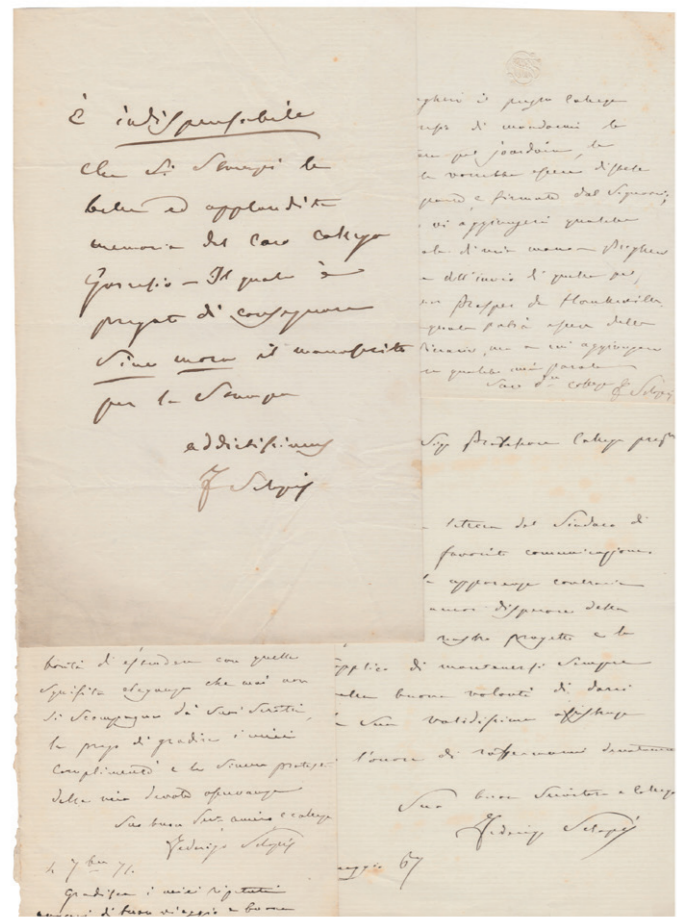 È indispensabile
che si stampi la
bella ed applaudita
memoria del Caro Collega
Gorresio – Il quale è
pregato di consegnare
sine mora il manoscritto
per la stampa
addictissimus
F Sclopis
il pregto Collega
di mandarmi la
la vorrebbe essere distesa
e firmata dal Signore;
vi aggiungerò qualche
di mia mano – Pregherei
dell'invio di quella per
Prosper de Hauteville
quale potrà essere della
ma a cui aggiungerò
qualche mia parola
Suo Collega F Sclopis
Sigr Professore Collega preg
lettera del Sindaco di
favorita comunicazione
apparenze contrarie
ancor disperare della
nostro progetto e la
supplico di mantenersi sempre
buona volontà di darci
sua validissima assistenza
l'onore di raffermarmi
Suo buon Servitore e Collega
Federigo Sclopis
maggio 67
bontà di estendere con quella
squisita eleganza che mai non
si scompagna da' suoi scritti,
la prego di gradire i miei
complimenti e la sincera protesta
della mia devota osservanza
Suo buon Serv. amico e collega
Federigo Sclopis
1. 7bre 71.
Gradisca i miei ripetuti
auguri di buon viaggio e buona